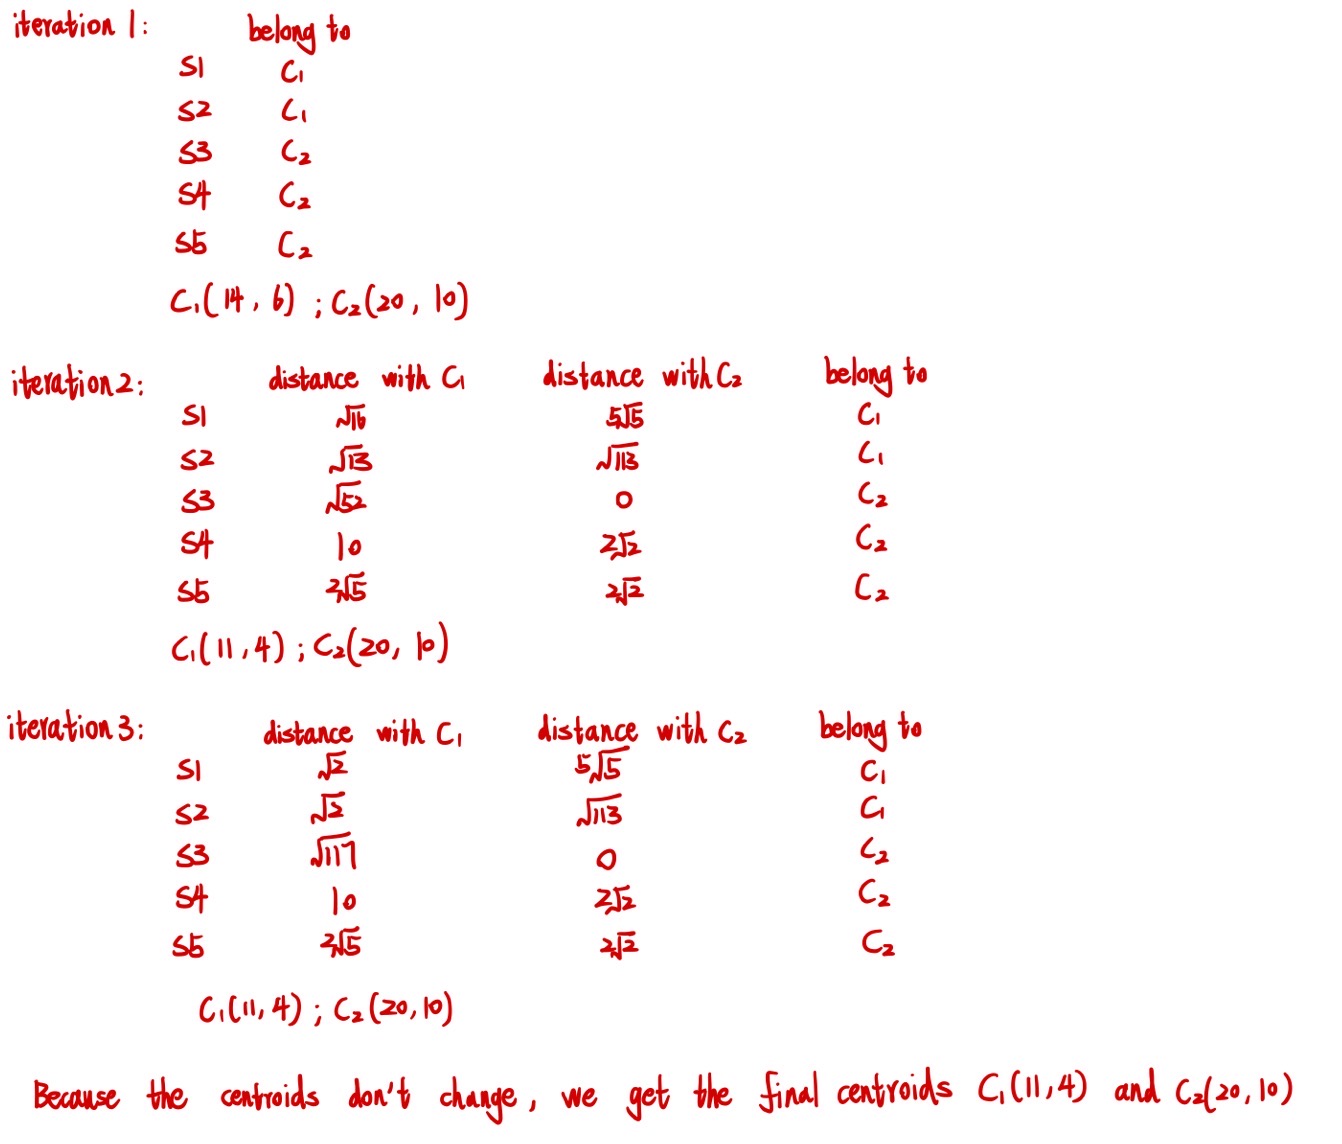 iteration 1: belong to
S1 C₁
S2 C₁
S3 C₂
S4 C₂
S5 C₂
C₁(14, 6) ; C₂(20, 10)
iteration2: distance with C₁ distance with C₂ belong to
S1 √16 5√5 C₁
S2 √13 √113 C₁
S3 √52 0 C₂
S4 10 2√2 C₂
S5 2√5 2√2 C₂
C₁(11,4) ; C₂(20, 10)
iteration3: distance with C₁ distance with C₂ belong to
S1 √2 5√5 C₁
S2 √2 √113 C₁
S3 √117 0 C₂
S4 10 2√2 C₂
S5 2√5 2√2 C₂
C₁(11,4) ; C₂(20,10)
Because the centroids don't change, we get the final centroids C₁(11,4) and C₂(20,10)